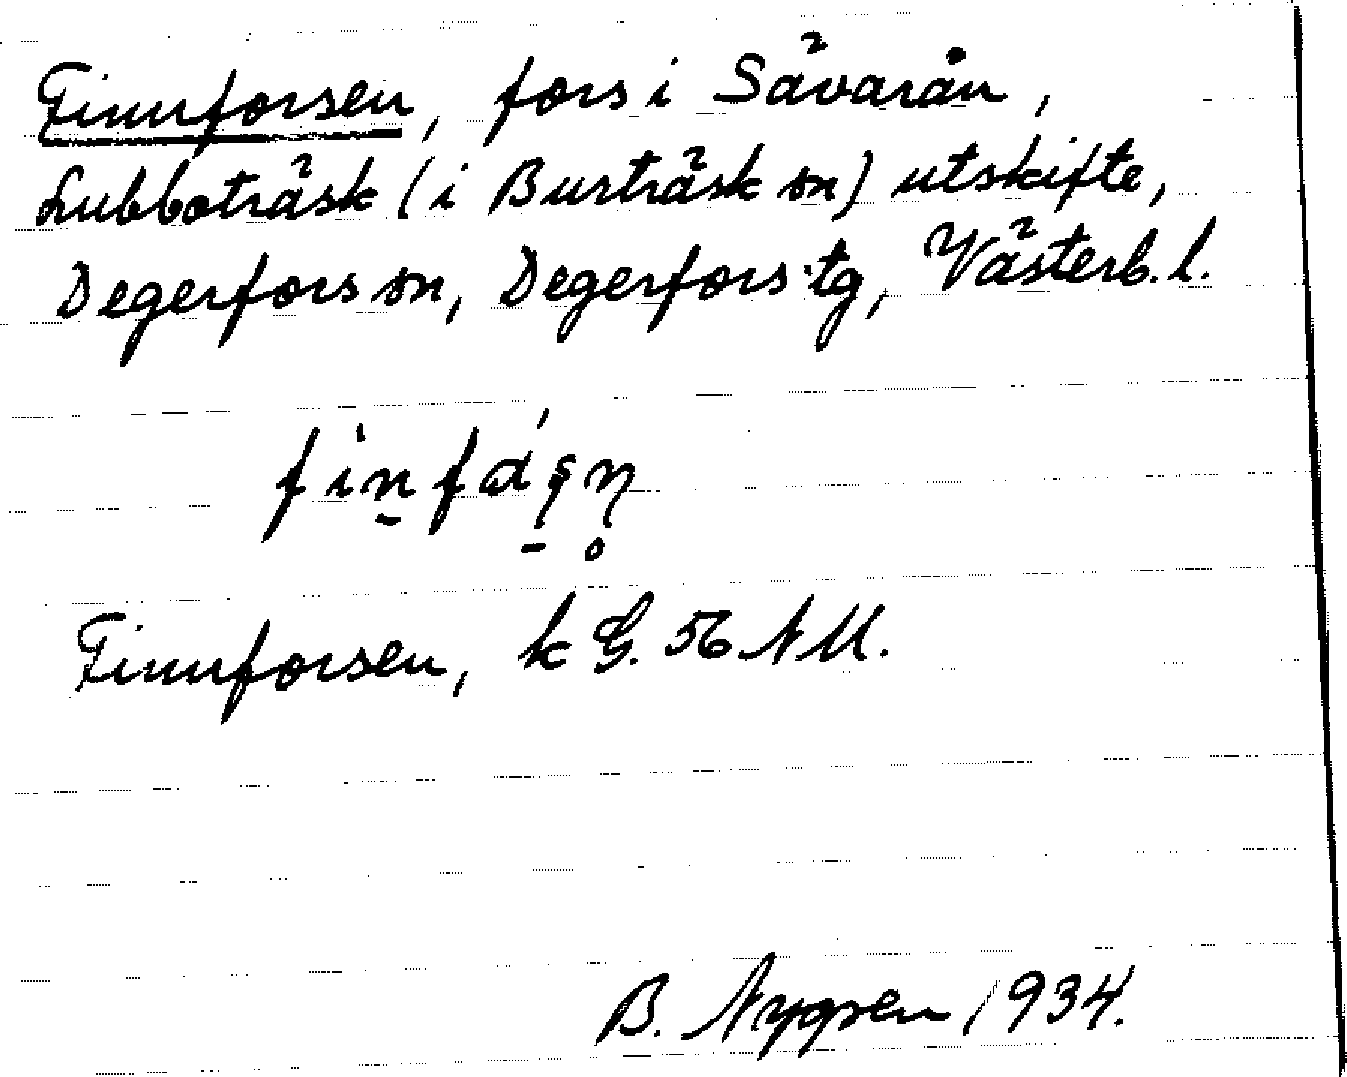 Finnforsen, fors i Sävarån,
Lubboträsk (i Burträsk sn) utskifte,
Degerfors sn, Degerfors tg, Västerb. l.
Finnforsen, k G. 56 NU.
B. Nygren 1934.